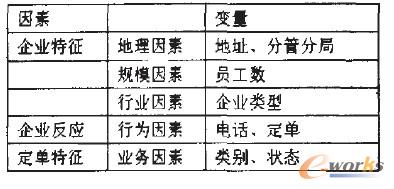 因素 变量
企业特征 地理因素 地址、分管分局
规模因素 员工数
行业因素 企业类型
企业反应 行为因素 电话、定单
定单特征 业务因素 类别、状态
e-works